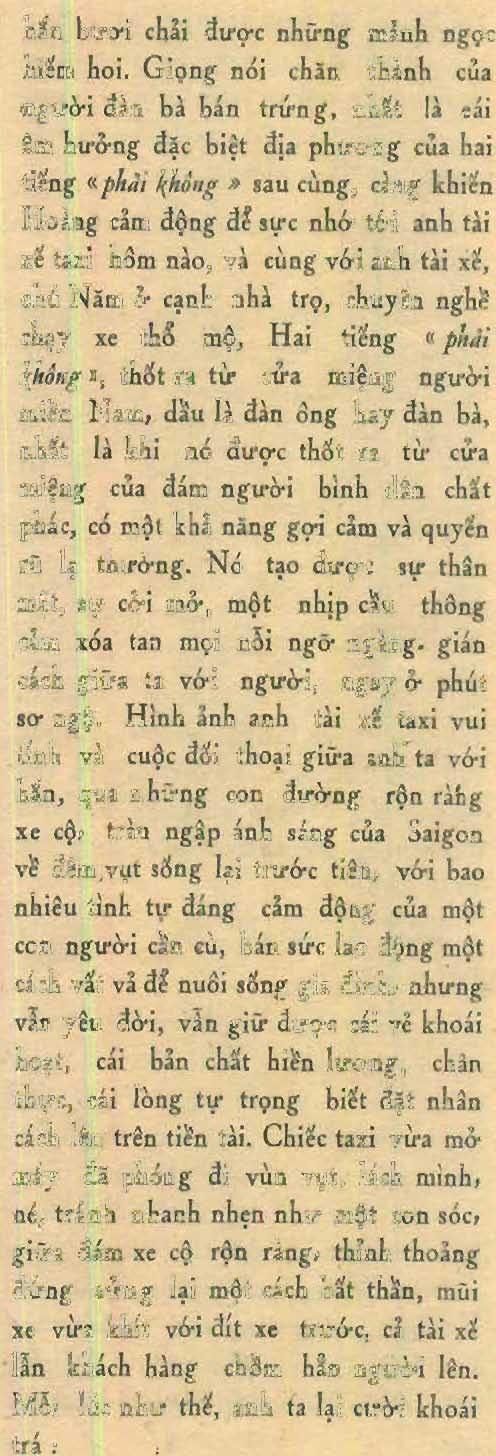 hắn bươi chải được những mảnh ngọc
hiếm hoi. Giọng nói chân thành của
người đàn bà bán trứng, nhất là cái
âm hưởng đặc biệt địa phương của hai
tiếng «phải không» sau cùng, càng khiến
Hoàng cảm động để sực nhớ tới anh tài
xế taxi hôm nào, và cùng với anh tài xế,
chú Năm ở cạnh nhà trọ, chuyên nghề
chạy xe thổ mộ, Hai tiếng «phải
không», thốt ra từ cửa miệng người
miền Nam, dầu là đàn ông hay đàn bà,
nhất là khi nó được thốt ra từ cửa
miệng của đám người bình dân chất
phác, có một khả năng gợi cảm và quyến
rũ lạ thường. Nó tạo được sự thân
mật, sự cởi mở, một nhịp cầu thông
cảm xóa tan mọi nỗi ngỡ ngàng, gián
cách giữa ta với người, ngay ở phút
sơ ngộ. Hình ảnh anh tài xế taxi vui
tính và cuộc đối thoại giữa anh ta với
hắn, qua những con đường rộn ràng
xe cộ, tràn ngập ánh sáng của Saigon
về đêm, vụt sống lại trước tiên, với bao
nhiêu tình tự đáng cảm động của một
con người cần cù, bán sức lao động một
cách vất vả để nuôi sống gia đình, nhưng
vẫn yêu đời, vẫn giữ được cái vẻ khoái
hoạt, cái bản chất hiền lương, chân
thực, cái lòng tự trọng biết đặt nhân
cách lên trên tiền tài. Chiếc taxi vừa mở
máy đã phóng đi vùn vụt, lách mình,
né, tránh nhanh nhẹn như một con sóc,
giữa đám xe cộ rộn ràng, thỉnh thoảng
đứng sững lại một cách bất thần, mũi
xe vừa khít với đít xe trước, cả tài xế
lẫn khách hàng chồm hẳn người lên.
Mỗi lúc như thế, anh ta lại cười khoái
trá :